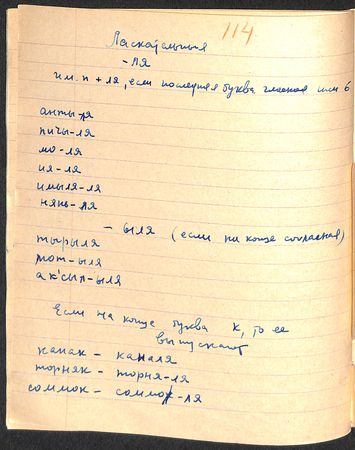 114
Ласкательныя
-ля
им. п + ля, если последняя буква гласная или б
анты-ля
пичы-ля
мо-ля
ия-ля
имыля-ля
нянь-ля
- ыля (если на конце согласная)
тырыля
тот-ыля
ак'сып-ыля
Если на конце буква к, то ее
выпускают
канак - каналя
торняк - торня-ля
соммок - соммо-ля